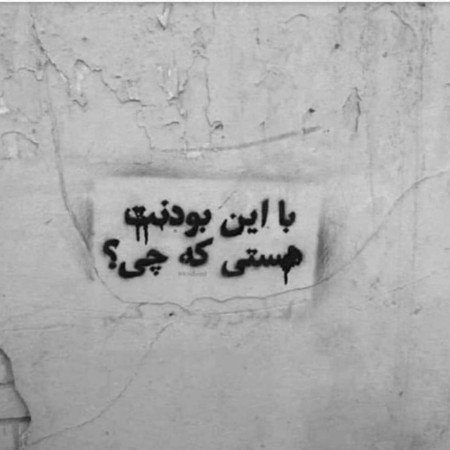 با این بودنت
هستی که چی؟